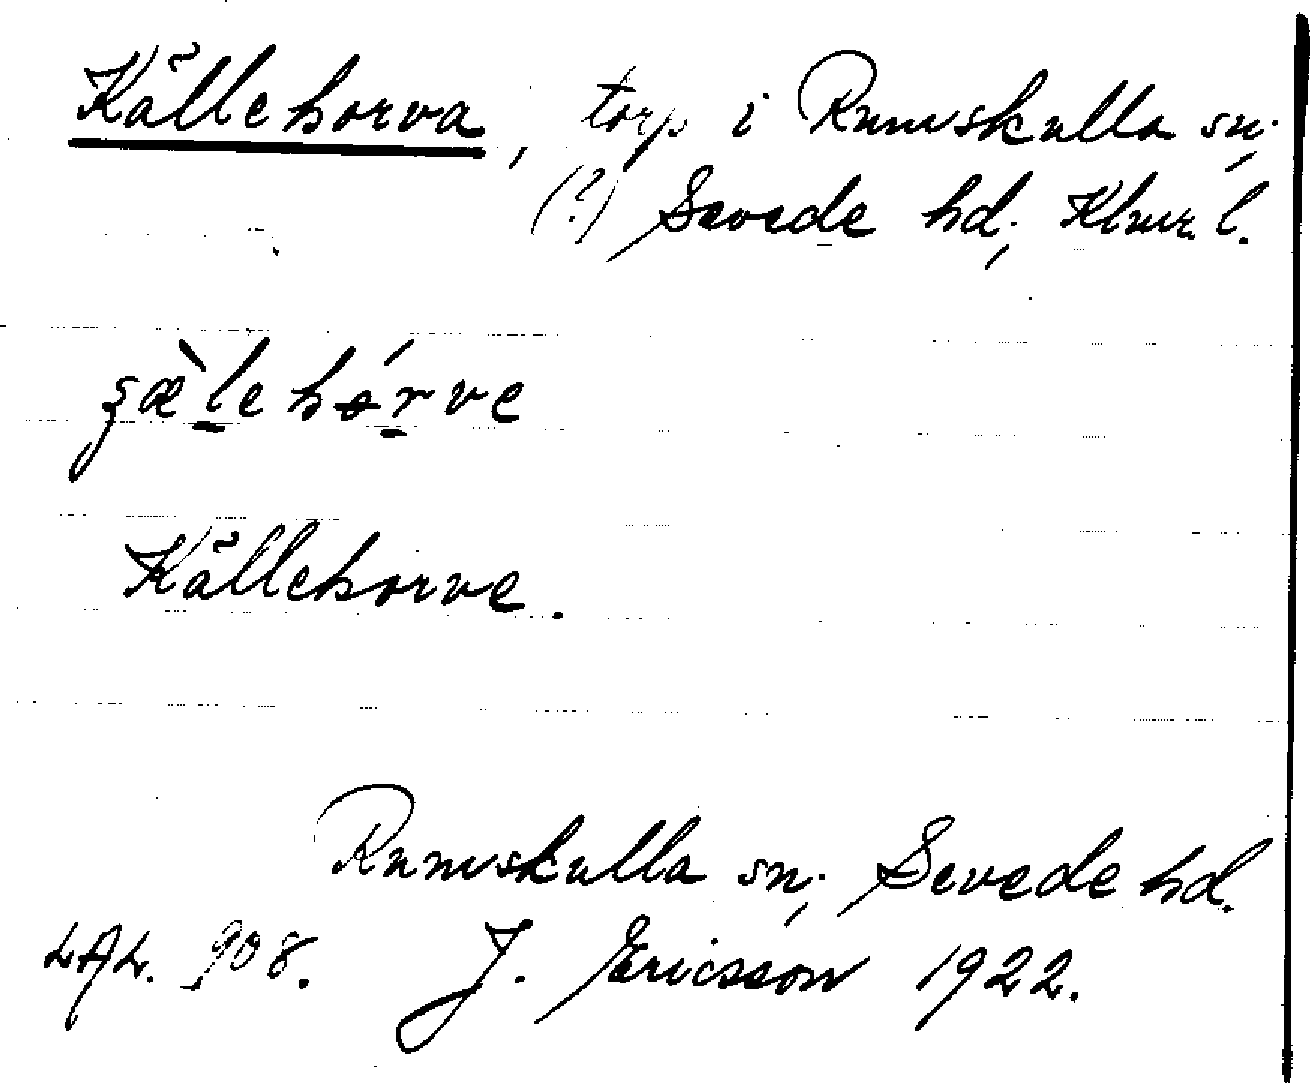 Källehorva, torp i Rumskulla sn,
(?) Sevede hd, Klmr. l.
Källehorve.
Rumskulla sn, Sevede hd.
LAL. 908. J. Ericsson 1922.